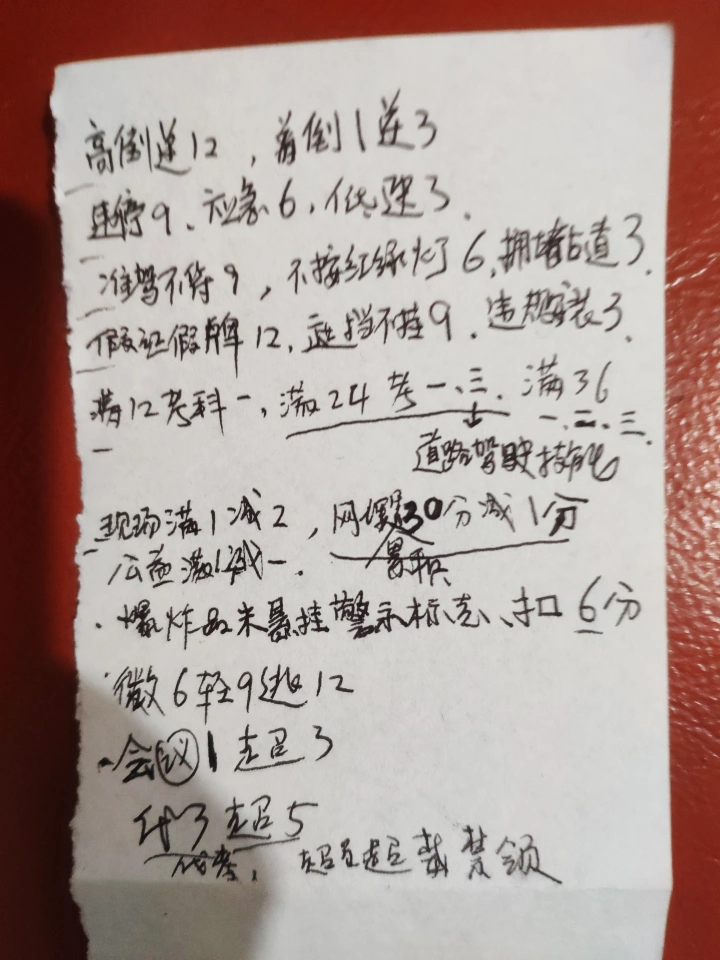 高倒逆12，普倒1逆3
违停9、应急6，低速3.
准驾不符9，不按红绿灯6，拥堵占道3.
假证假牌12、遮挡不挂9、违规安装3.
满12考科一，满24考一、三、满36
一、二、三.
道路驾驶技能
现场满1减2，网络30分减1分
累积
公益满1减一.
·爆炸品未悬挂警示标志、扣6分
微6轻9逃12
·会议1超3
代3超5
代考，超员超载禁领